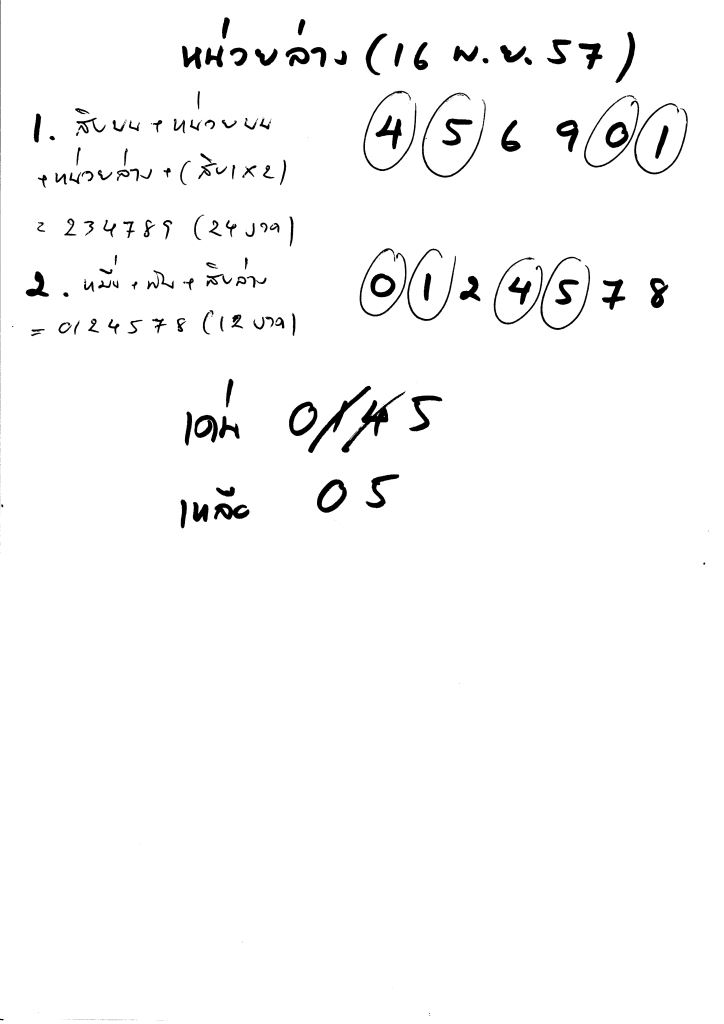 หน่วยล่าง (16 พ.ย. 57)
1. สิบบน + หน่วยบน 4 5 6 9 0 1
+ หน่วยล่าง + (สิบ1×2)
= 234789 (24 งวด)
2. หมื่น + พัน + สิบล่าง 0 1 2 4 5 7 8
= 0124578 (12 งวด)
เด่น 0145
เหลือ 05